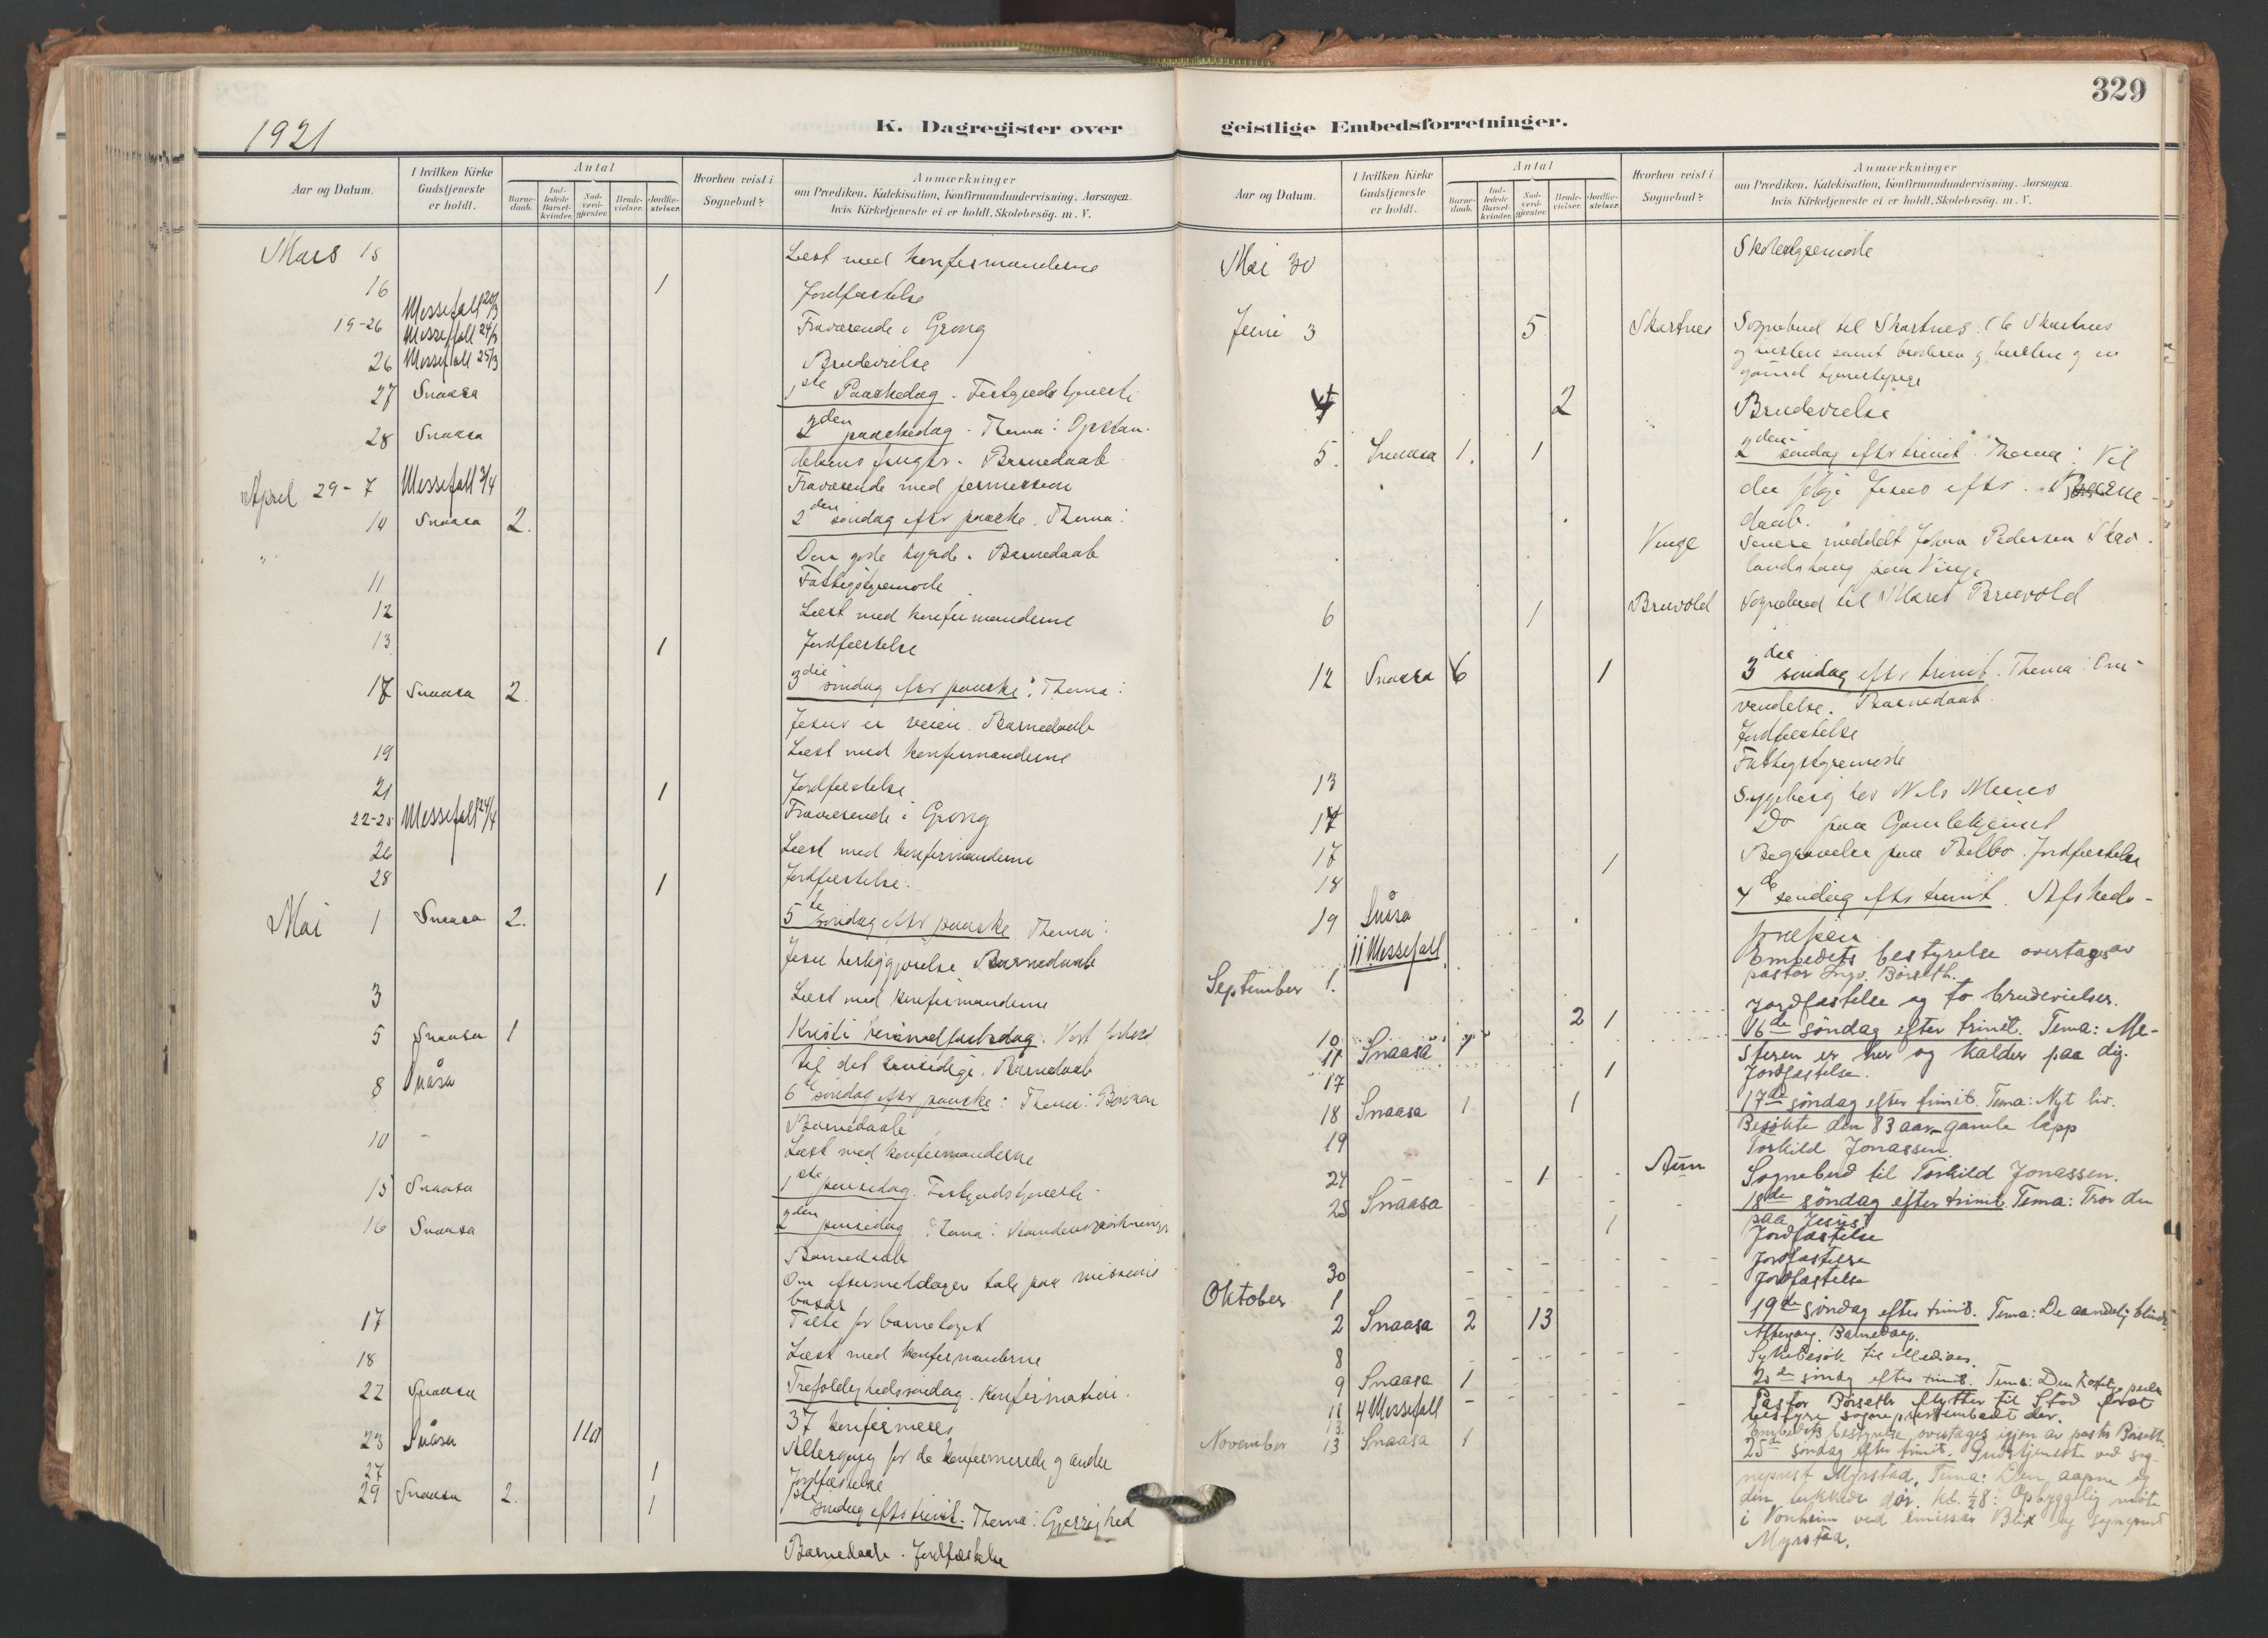 1921
K. Dagregister over
Aar og Datum.
I hvilken Kirke Gudstjeneste er holdt.
Antal
Barne-daab.
Ind-ledede Barsel-kvinder.
Nad-verd-gjester.
Brude-vielser.
Jordfæ-stelser.
Hvorhen reist i Sognebud?
Anmærkninger
om Prædiken. Katekisation, Konfirmandundervisning. Aarsagen
hvis Kirketjeneste ei er holdt. Skolebesög. m. V.
Mars 15 Læst med konfirmanderne
16 1 Jordfæstelse
19-26 Messefall 20/3 Fraværende i Grong
Messefall 24/3
26 Messefall 25/3 Brudevielse
27 Snaasa 1ste Paaskedag. Festgudstjeneste
28 Snaasa 2den paaskedag. Thema: Opstan-
delsens frugter. Barnedaab
April 29-7 Messefall 3/4 Fraværende med permission
10 Snaasa 2. 2den søndag efter paaske. Thema:
Den gode hyrde. Barnedaab
11 Fattigstyremøde
12 Læst med konfirmanderne
13 1 Jordfæstelse
17 Snaasa 2. 3die søndag efter paaske. Thema:
Jesus er veien. Barnedaab
19 Læst med konfirmanderne
21 1 Jordfæstelse
22-25 Messefall 24/4 Fraværende i Grong
26 Læst med konfirmanderne
28 1 Jordfæstelse.
Mai 1 Snaasa 2. 5te søndag efter paaske. Thema:
Jesu herliggjørelse. Barnedaab
3 Læst med konfirmanderne
5 Snaasa 1 Kristi himmelfartsdag.
til det Barnedaab
8 Snåsa 6te søndag efter paaske: Thema: Bønnen
Barnedaab
10 - Læst med konfirmanderne
15 Snaasa 1ste pinsedag. Festgudstjeneste
16 Snaasa 2den pinsedag Thema:
Barnedaab
Om eftermiddagen tale paa missions
basar
17 Talte for barnetoget
18 Læst med konfirmanderne
22 Snaasa Trefoldighedssøndag. Konfirmation.
37 konfirmeres
23 Snåsa 110 Altergang for de konfirmerede og andre
27 1 Jordfæstelse
29 Snaasa 2. 1 1ste søndag efter trinit. Thema: Gjerrighed
Barnedaab. Jordfæstelse
329
geistlige Embedsforretninger.
Aar og Datum.
I hvilken Kirke Gudstjeneste er holdt.
Antal
Barne-daab.
Ind-ledede Barsel-kvinder.
Nad-verd-gjester.
Brude-vielser.
Jordfæ-stelser.
Hvorhen reist i Sognebud?
Anmærkninger
om Prædiken. Katekisation, Konfirmandundervisning. Aarsagen
hvis Kirketjeneste ei er holdt. Skolebesög. m. V.
Mai 30 Skolestyremøde
Juni 3 5 Skartnes Sognebud til Skartnes. Skartnes
og hustru samt broderen og hustru og en
gammel
4 2 Brudevielse
5. Snaasa 1. 1 2den søndag efter trinit. Thema: Vil
du følge Jesus efter. Barne-
daab.
Vinge Senere meddelt Johan Pedersen
paa Vinge
6 1 Bruvold Sognebud til Maret Bruvold
12 Snaasa 6 1 3die søndag efter trinit. Thema: Om-
vendelse. Barnedaab.
Jordfæstelse
Fattigstyremøde
13 Sygebesøg hos Nils
14 Do paa
17 1 Begravelse paa Jordfæstelse
18
19 Snåsa 4de søndag efter trinit. Afskeds-
præken
11 Messefall Embedets bestyrelse overtages av
pastor Ingv. Børseth.
September 1.
10 2 1 Jordfæstelse og to brudevielser.
11 Snaasa 7 16de søndag efter trinit. Tema: Me-
steren er her og kalder paa dig.
17 1 Jordfæstelse.
18 Snaasa 1 1 17de søndag efter trinit. Tema: Nyt liv.
19 Besøkte den 83 aar gamle lapp
Torkild Jonassen.
24 1 Aun Sognebud til Torkild Jonassen.
25 Snaasa 18de søndag efter trinit. Tema: Tror du
paa Jesus?
1 Jordfæstelse
30 Jordfæstelse
Oktober 1 Jordfæstelse
2 Snaasa 2 13 19de søndag efter trinit. Tema: De aandelig blinde.
Altergang. Barnedaap.
8 Sykebesøk til
9 Snaasa 1 20de søndag efter trinit. Tema: Den kostelige perle
11 4 Messefall Pastor Børseth flytter til Stod for at
bestyre sogneprestembedet der.
13. Embedets bestyrelse overtages igjen av pastor Børseth.
November 13 Snaasa 1 25de søndag efter trinit. Gudstjeneste ved sog-
neprest Myrstad. Tema: Den aapne og
den lukkede dør. Kl. 1/2 8: Opbyggelig møte
i Vonheim ved emissær Blix og sogneprest
Myrstad.